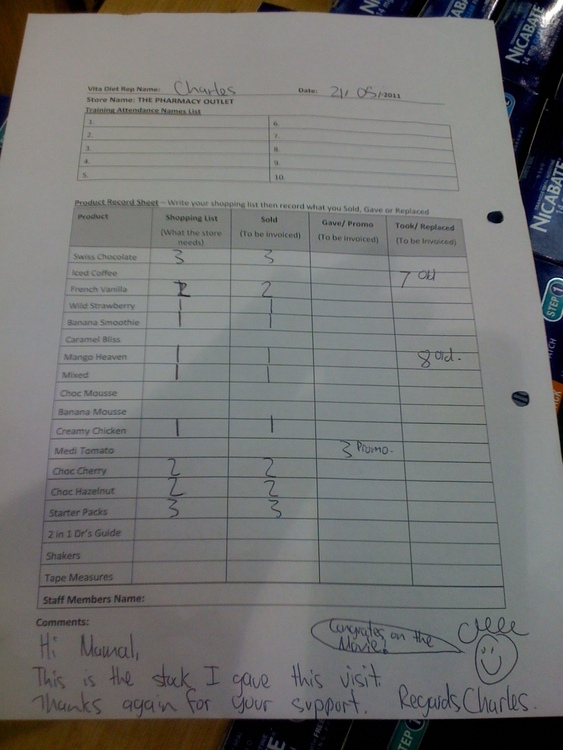 Vita Diet Rep Name: Charles Date: 21/05/2011
Store Name: THE PHARMACY OUTLET
Training Attendance Names List
1. 6.
2. 7.
3. 8.
4. 9.
5. 10.
Product Record Sheet – Write your shopping list then record what you Sold, Gave or Replaced
Product Shopping List Sold Gave/ Promo Took/ Replaced
(What the store needs) (To be invoiced) (To be invoiced) (To be invoiced)
Swiss Chocolate 3 3
Iced Coffee 7 old
French Vanilla 2 2
Wild Strawberry 1 1
Banana Smoothie 1 1
Caramel Bliss
Mango Heaven 1 1 8 old.
Mixed 1 1
Choc Mousse
Banana Mousse
Creamy Chicken 1 1
Medi Tomato 3 Promo.
Choc Cherry 2 2
Choc Hazelnut 2 2
Starter Packs 3 3
2 in 1 Dr's Guide
Shakers
Tape Measures
Staff Members Name:
Comments:
Congrates on the
Movie!
Hi
This is the stock I gave this visit.
Thanks again for your support. Regards Charles.
NICABATE
NICABATE
STEP 1
STEP 1